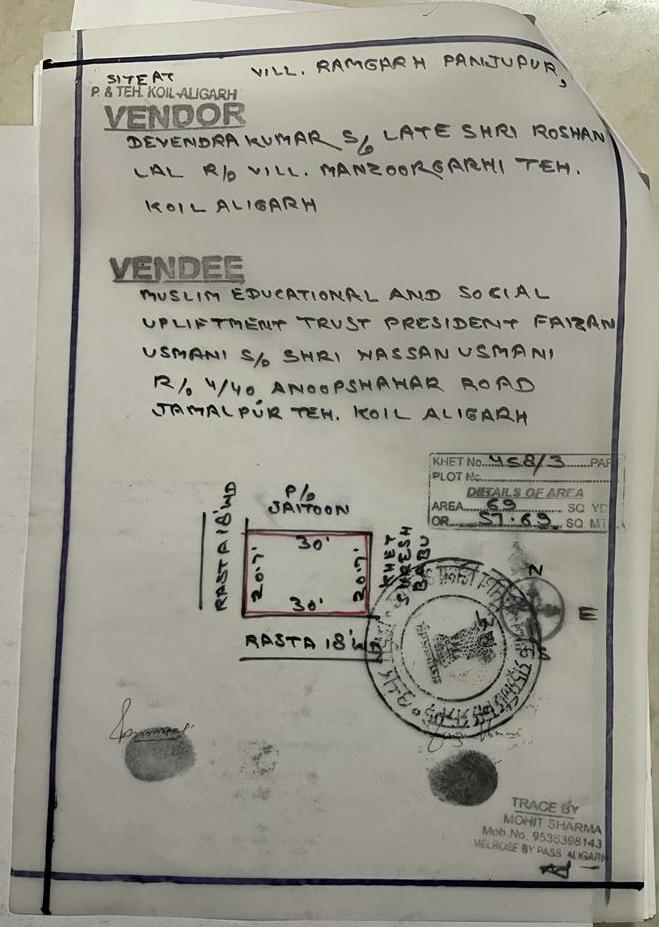 SITE AT VILL. RAMGARH PANJUPUR,
P. & TEH. KOIL-ALIGARH
VENDOR
DEVENDRA KUMAR S/o LATE SHRI ROSHAN
LAL R/o VILL. MANZOORGARHI TEH.
KOIL ALIGARH
VENDEE
MUSLIM EDUCATIONAL AND SOCIAL
UPLIFTMENT TRUST PRESIDENT FAIZAN
USMANI S/o SHRI HASSAN USMANI
R/o 4/40 ANOOPSHAHAR ROAD
JAMALPUR TEH. KOIL ALIGARH
KHET No. 458/3 PAR
PLOT No.
DETAILS OF AREA
AREA 69 SQ YD
OR 57.69 SQ MT
P/o
JAITOON
RASTA 18'WD
30'
20.7'
20.7'
30'
KHET
SURESH
BABU
RASTA 18'WD
N
E
TRACE BY
MOHIT SHARMA
Mob.No. 9536398143
MELROSE BY PASS ALIGARH